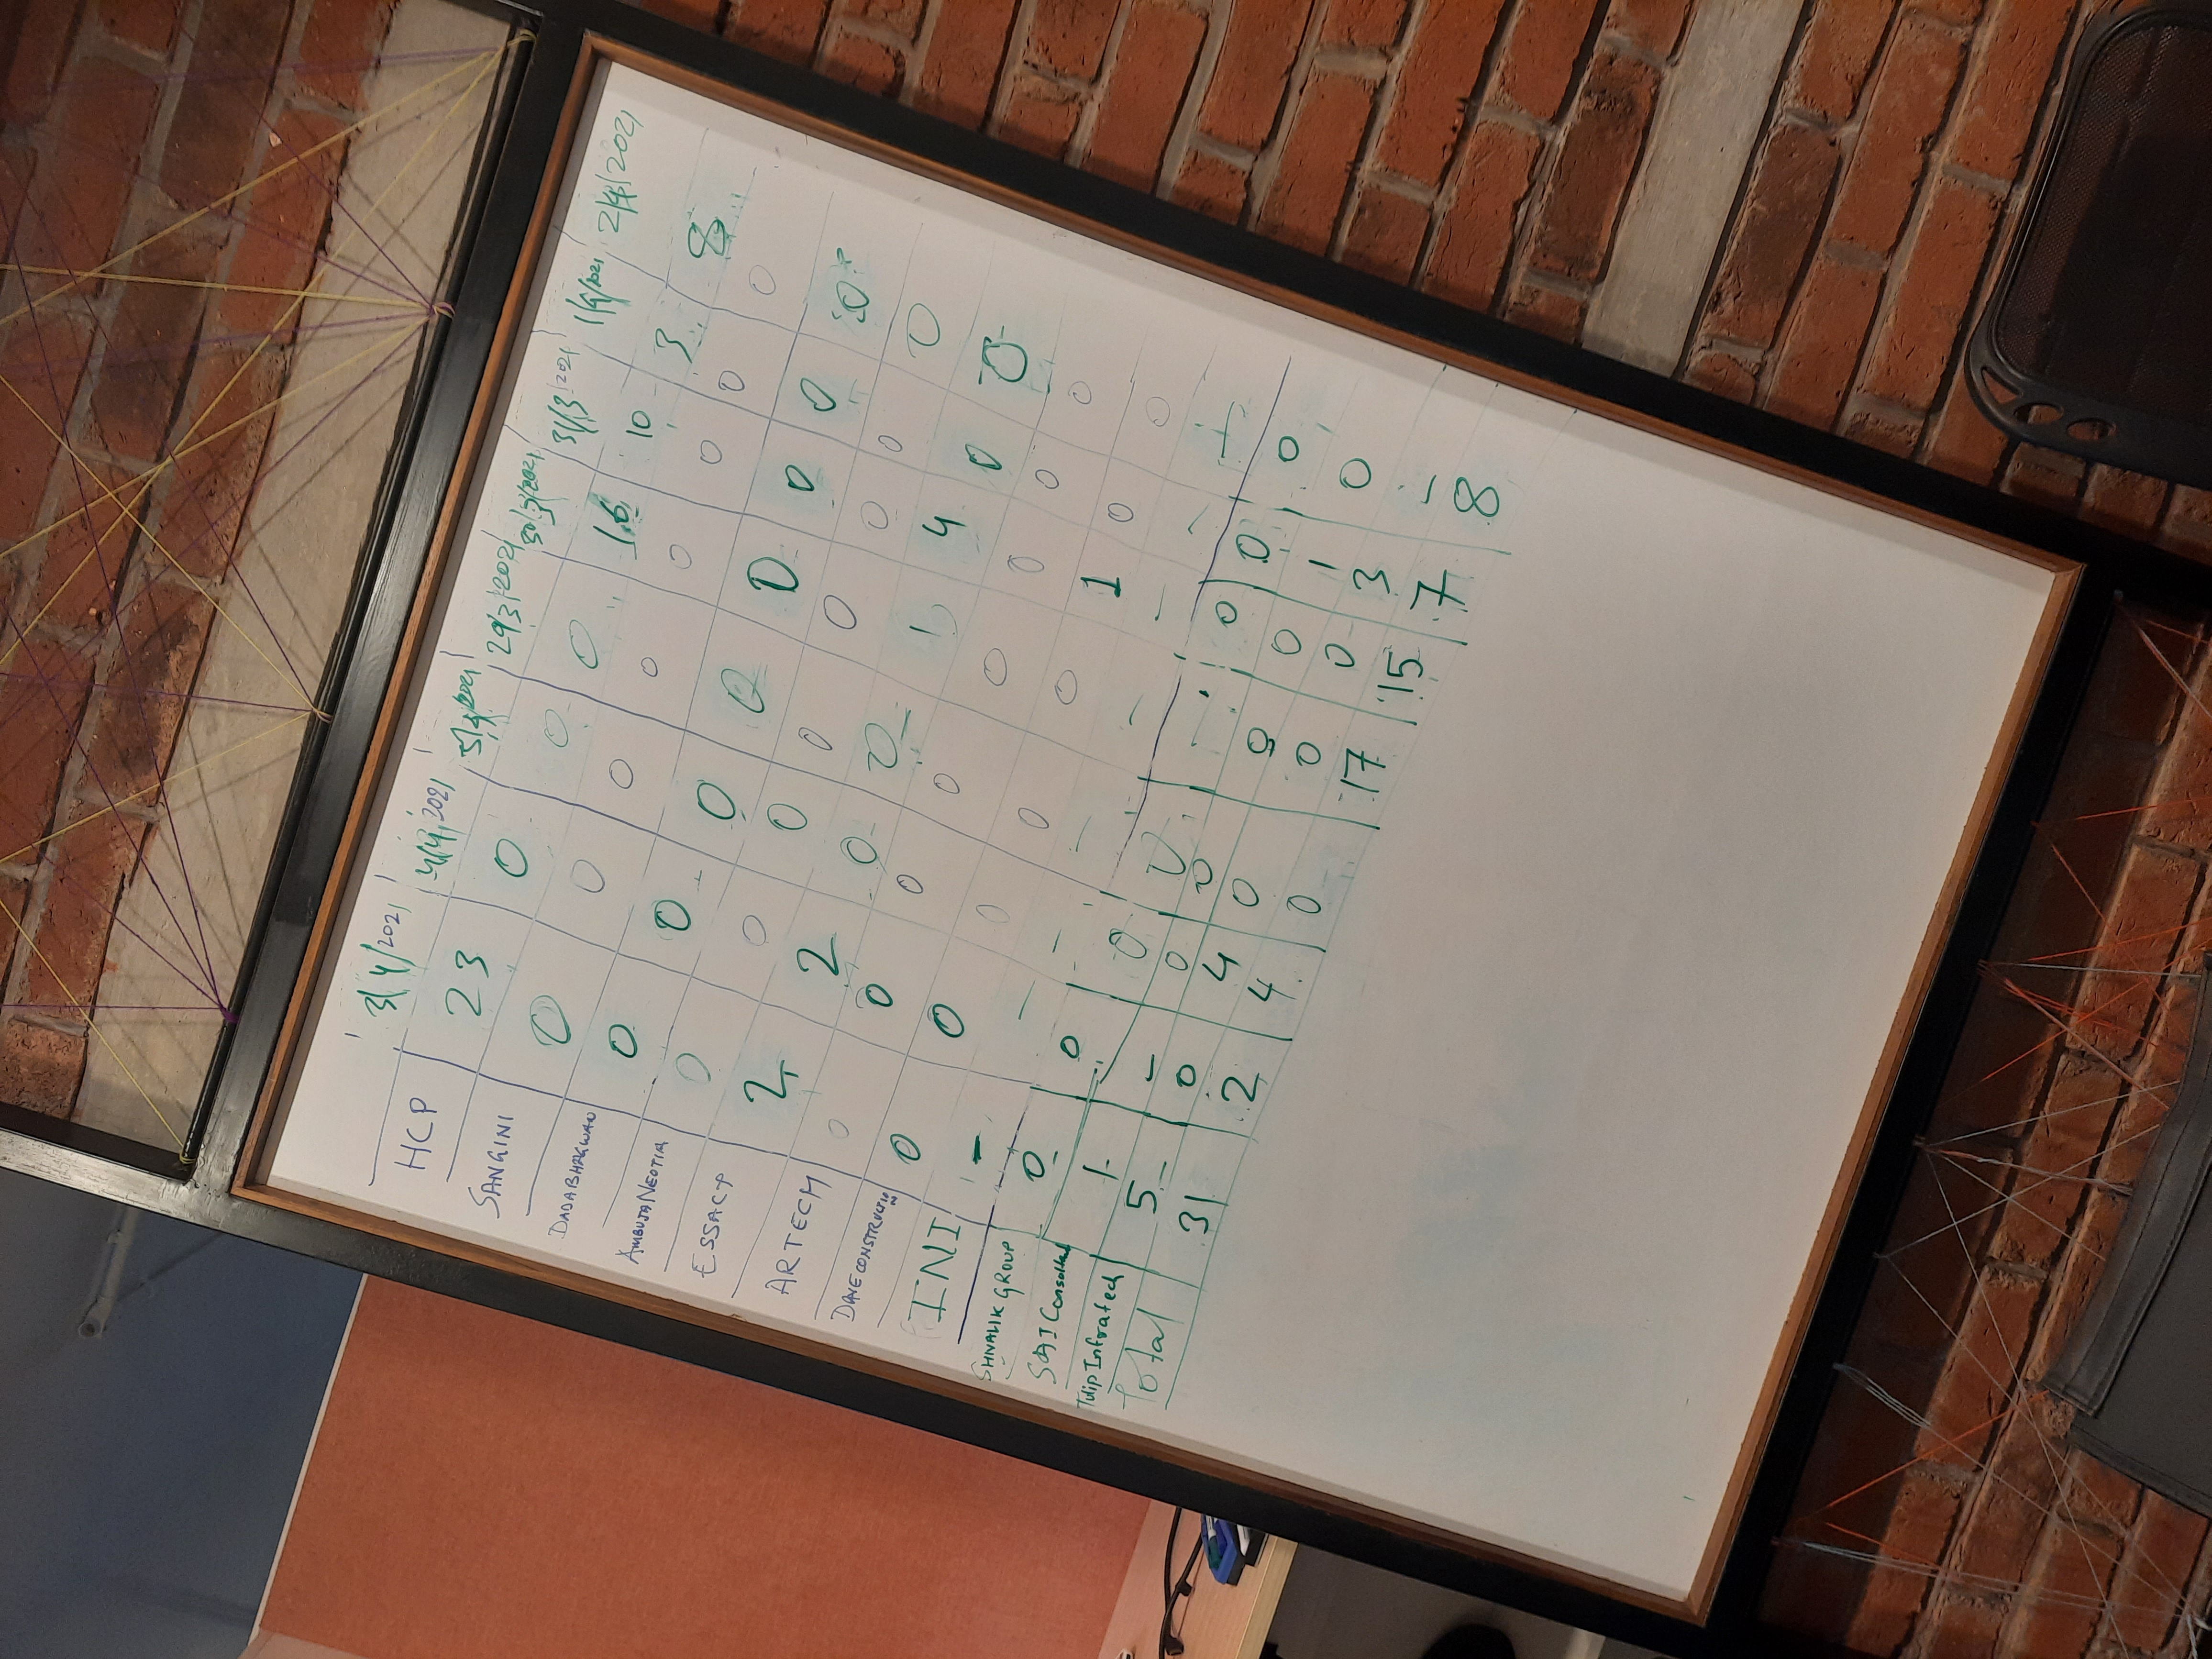 3/4/2021 4/4/2021 5/4/2021 29/3/2021 30/3/2021 31/3/2021 1/4/2021 2/4/2021
HCP 23 0 0 0 16 10 3 8
SANGINI 0 0 0 0 0 0 0 0
DADABHAGWAN 0 0 0 0 0 0 0 0
AMBUJA NEOTIA 0 0 0 0 0 0 0 0
ESSACP 2 2 0 0 1 4 0 0
ARTECH 0 0 0 0 0 0 0 0
DAVECONSTRUCTION 0 0 0 0 0 1 0 0
INI - - - - - - - -
SHIVALIK GROUP 0 0 0 0 - 0 0 0
SAI Consultant 1 - 0 0 0 0 1 0
Tulip Infratech 5 0 4 0 0 0 3 -
Total 31 2 4 0 17 15 7 8